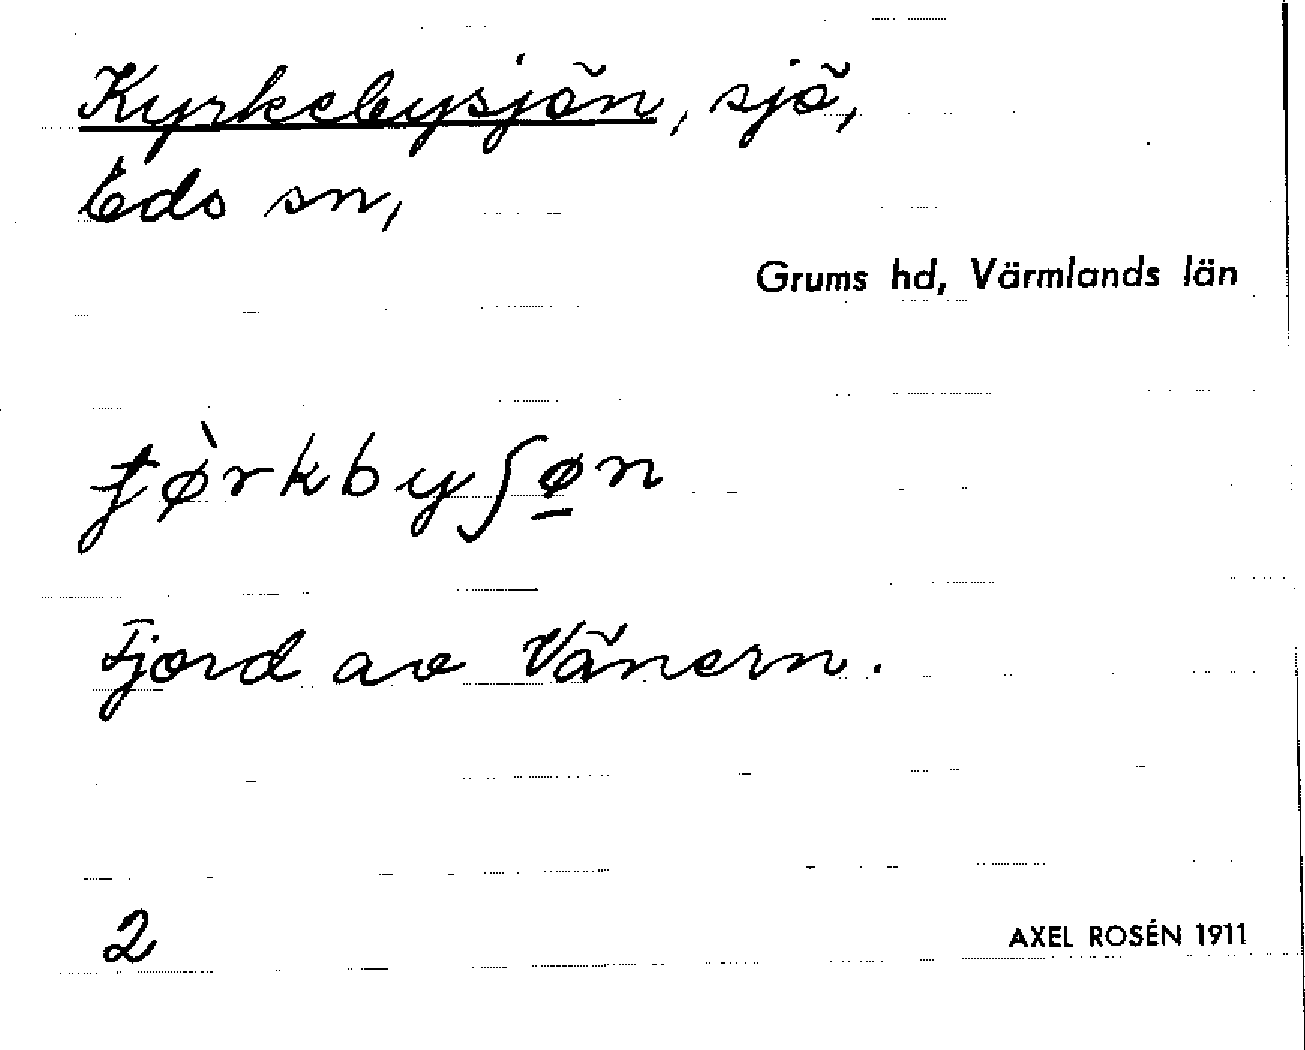 Kyrkebysjön, sjö,
Eds sn,
Grums hd, Värmlands län
ɟø̀rkbyʃø̲n
Fjord av Vänern.
2
AXEL ROSÉN 1911